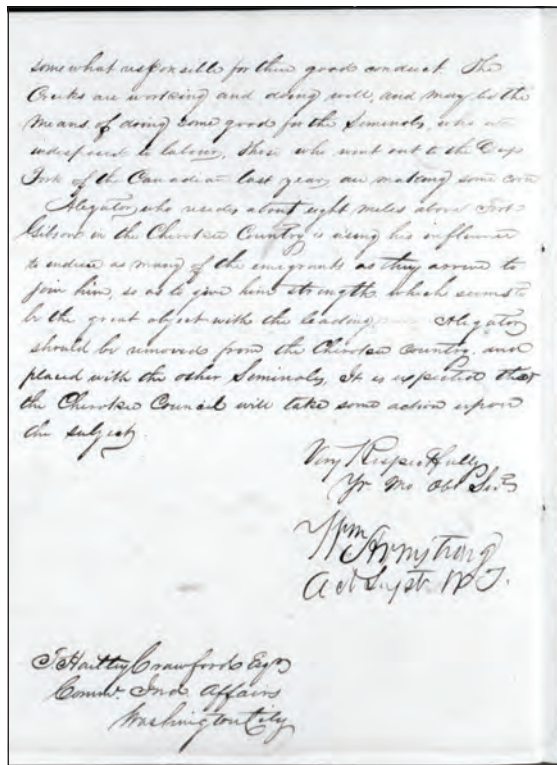 somewhat responsible for their good conduct. The
Creeks are working and doing well, and may be the
means of doing some good for the Seminoles, who are
indisposed to labour, those who went out to the Deep
Fork of the Canadian last year, are making some corn
Alegator, who resides about eight miles above Fort
Gibson in the Cherokee Country is using his influence
to induce as many of the emigrants as they arrive to
join him, so as to give him strength, which seems to
be the great object with the leading Alegator
should be removed from the Cherokee Country, and
placed with the other Seminoles, It is expected that
the Cherokee Council will take some action upon
the subject.
Very Respectfully
Yr. Mo Obt Servt
Wm Armstrong
Act Supt. W. T.
T. Hartley Crawford Esqr
Commr. Ind. Affairs
Washington City